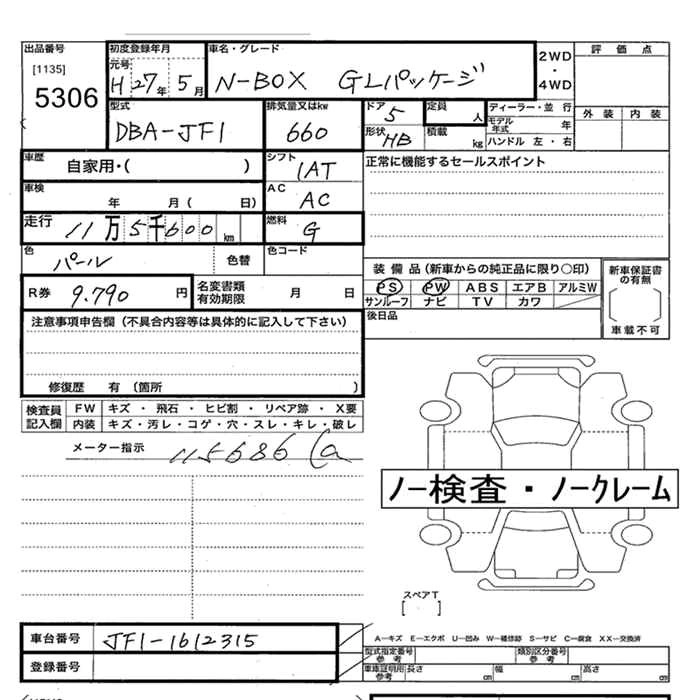 出品番号 初度登録年月 車名・グレード 2WD 評価点
[1135] 元号 ・
5306 H 27年 5月 N-BOX GLパッケージ 4WD
型式 排気量又はkw ドア 5 定員 人 ディーラー・並 行 外装 内装
DBA-JF1 660 形状 HB 積載 kg モデル年式 年
ハンドル 左・右
車歴 自家用・( ) シフト 1AT 正常に機能するセールスポイント
車検 年 月( 日) AC AC
走行 11万5千600km 燃料 G
色 パール 色替 色コード
装備品(新車からの純正品に限り〇印) 新車保証書の有無
R券 9.790 円 名変書類有効期限 月 日 PS PW ABS エアB アルミW
サンルーフ ナビ TV カワ
注意事項申告欄(不具合内容等は具体的に記入して下さい) 後日品 車載不可
修復歴 有(箇所 )
検査員記入欄 FW キズ・飛石・ヒビ割・リペア跡・X要
内装 キズ・汚レ・コゲ・穴・スレ・キレ・破レ
メーター指示 115686
ノー検査・ノークレーム
スペアT
[ ]
車台番号 JF1-1612315 A―キズ E―エクボ U―凹み W―補修跡 S―サビ C―腐食 XX―交換済
型式指定番号参考 類別区分番号参考
登録番号 車庫証明用参考 長さ cm 幅 cm 高さ cm